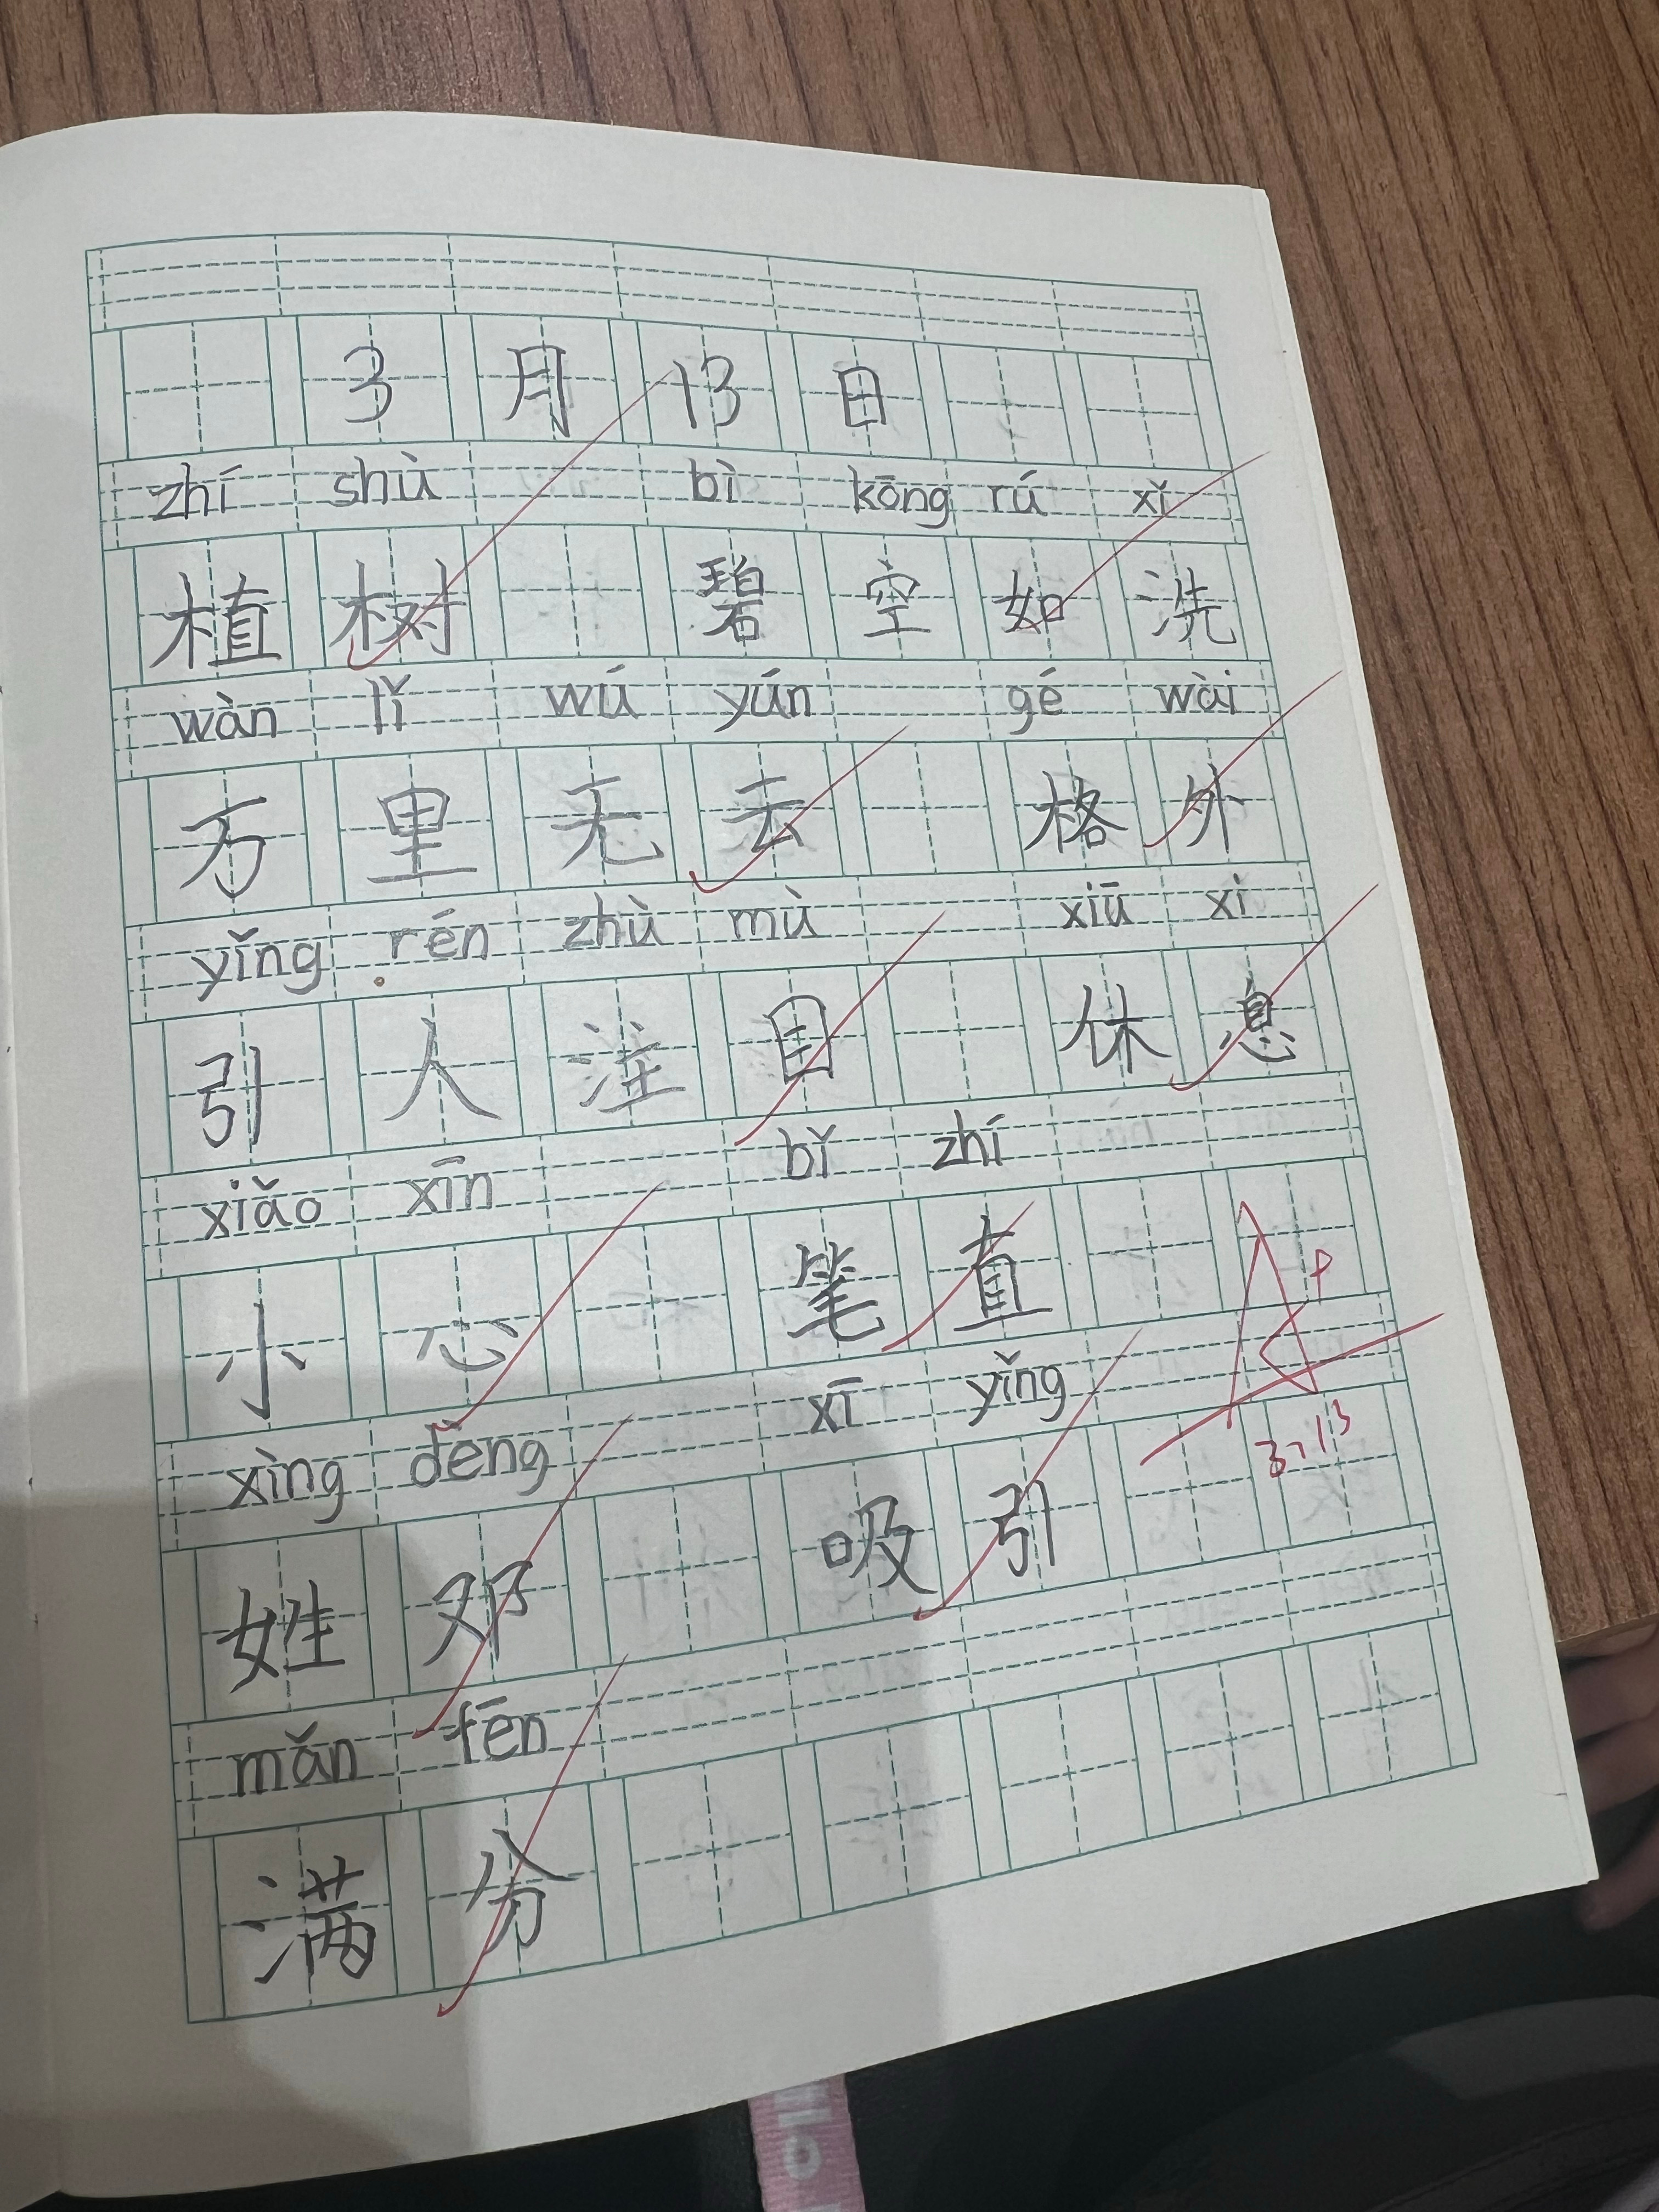 3 月 13 日
zhí shù bì kōng rú xǐ
植 树 碧 空 如 洗
wàn lǐ wú yún gé wài
万 里 无 云 格 外
yǐng rén zhù mù xiū xi
引 人 注 目 休 息
xiǎo xīn bǐ zhí
小 心 笔 直
xìng dèng xī yǐng
姓 邓 吸 引
mǎn fēn
满 分
A
3,13